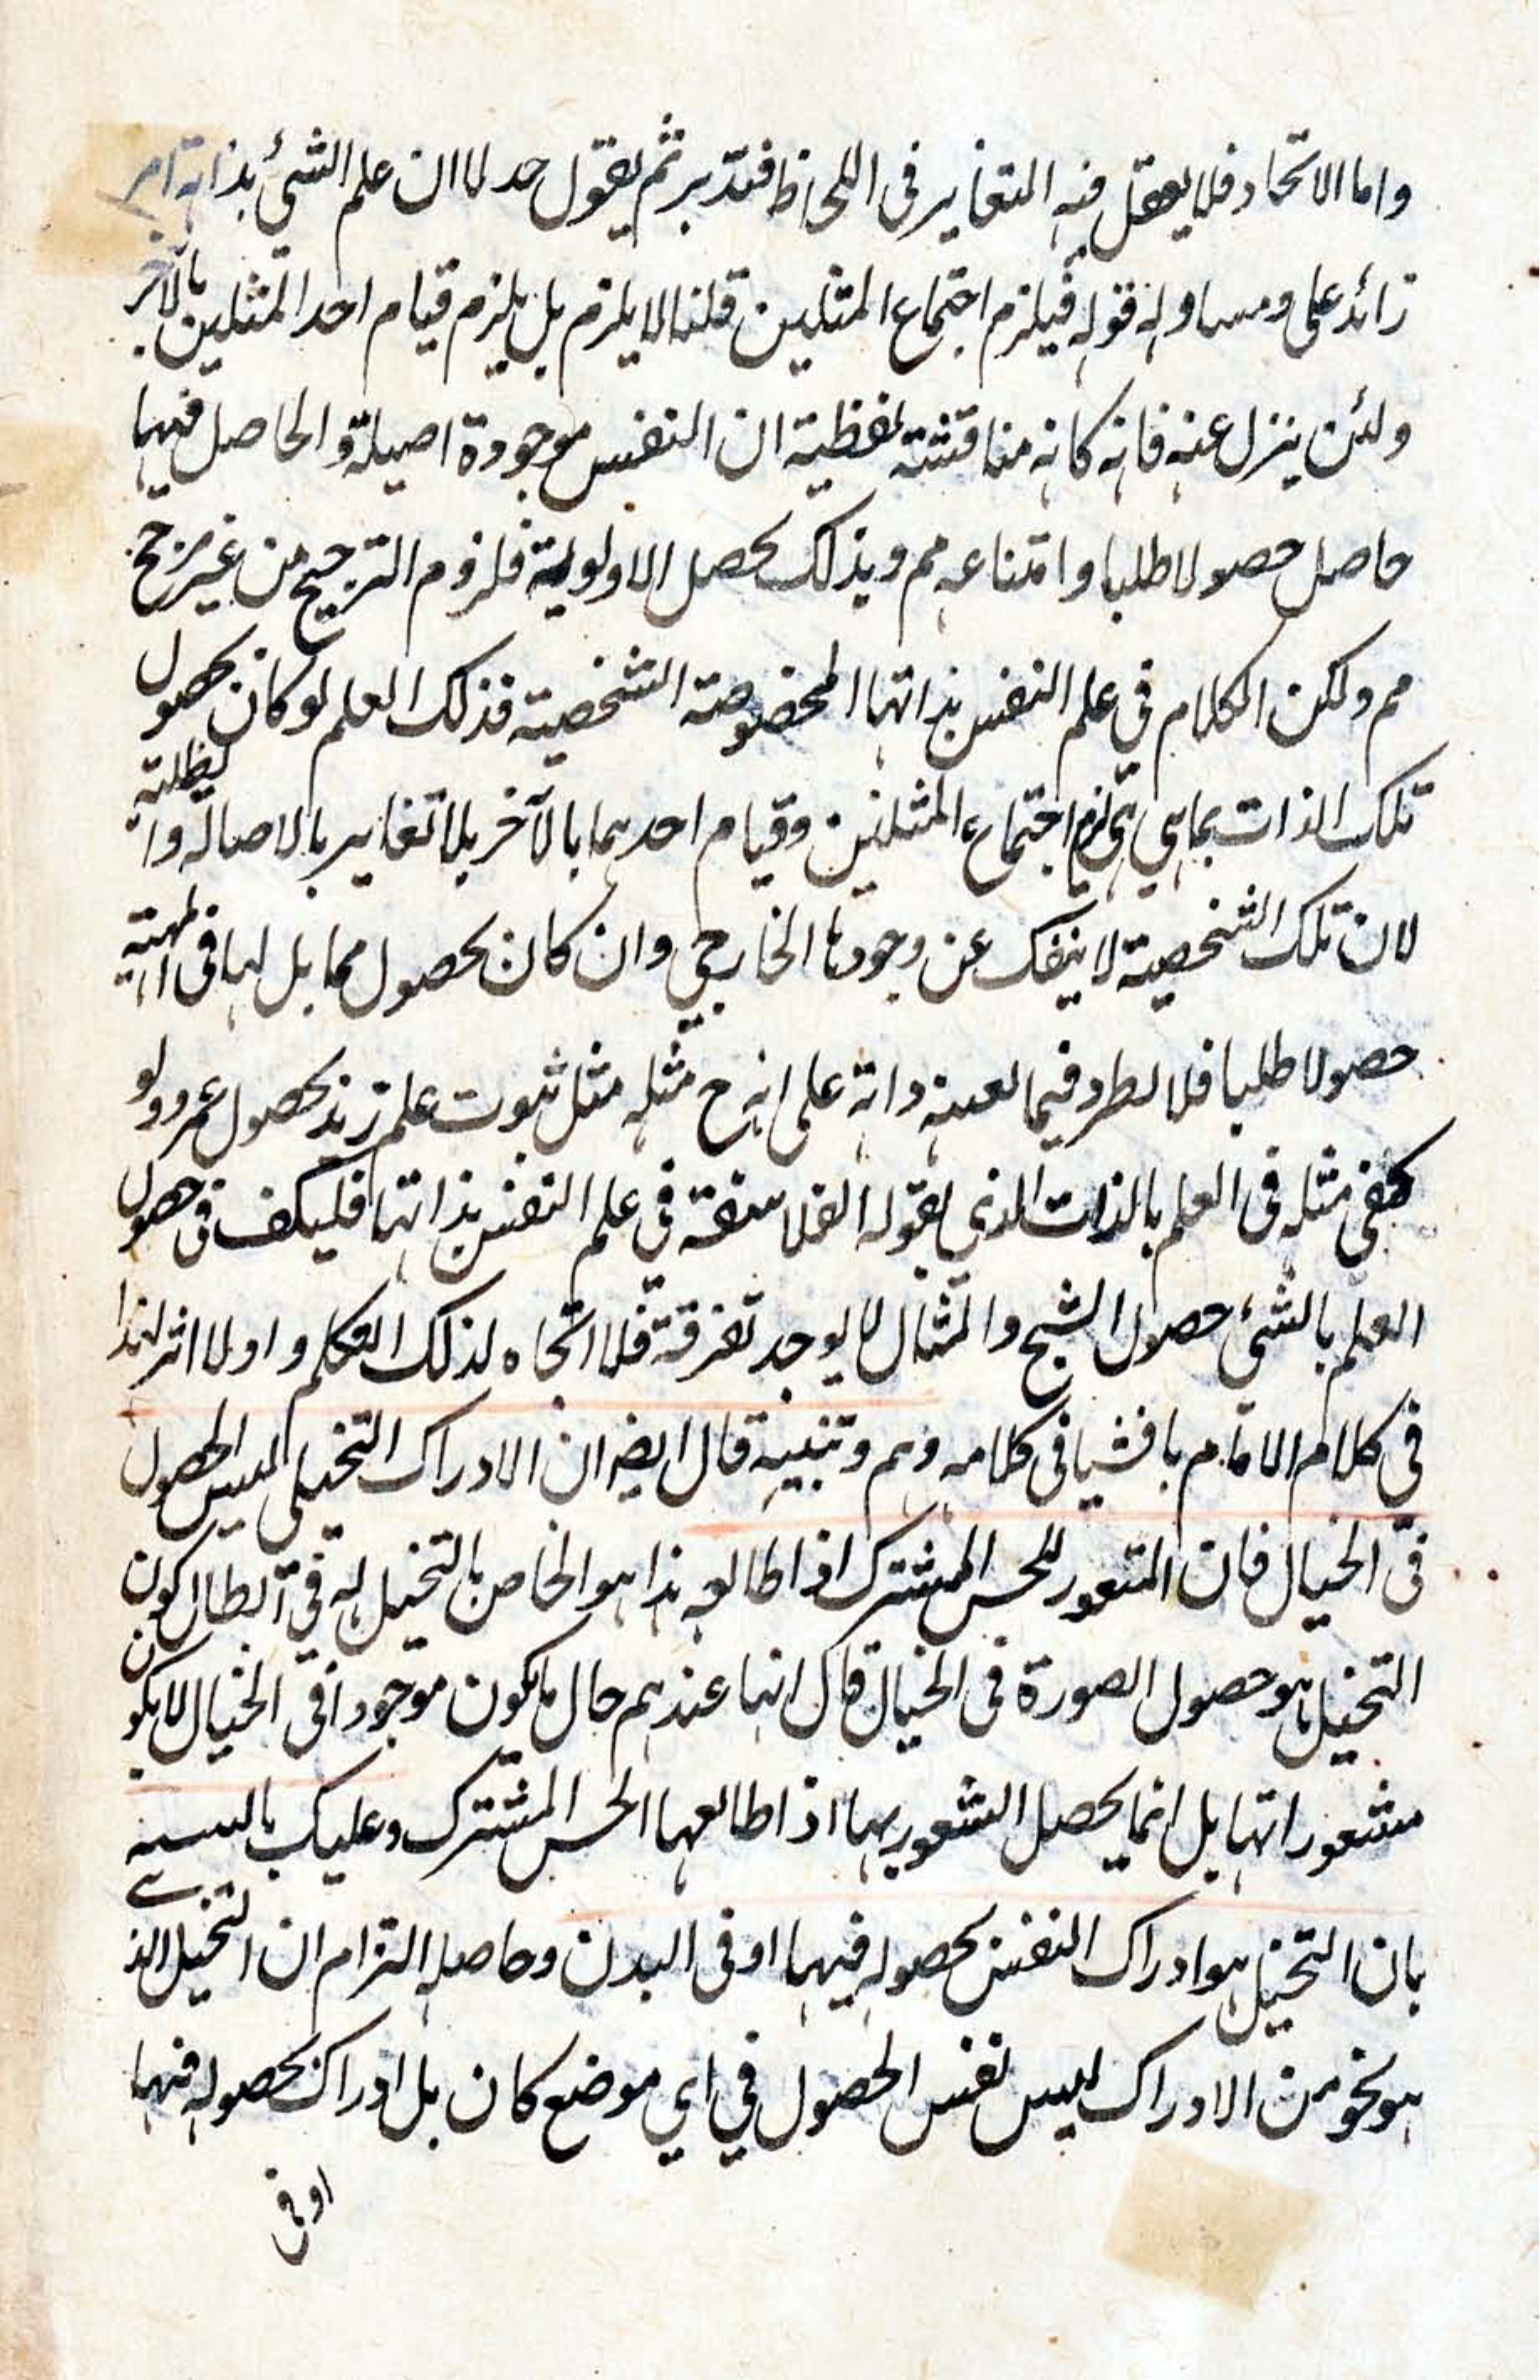 واما الاتحاد فلا يعقل فيه التغاير فى اللحاظ فتدبر ثم يقول جدلا ان علم الشئ بذاته امر
زائد على ومساو له قوله فيلزم اجتماع المثلين قلنا لا يلزم بل يلزم قيام احد المثلين بالآخر
ولئن ينزل عنه فانه كانه مناقشة لفظية ان النفس موجودة اصيلة والحاصل فيها
حاصل حصولا ظليا وامتناعه مم وبذلك يحصل الاولوية فلزوم الترجيح من غير مرجح
مم ولكن الكلام في علم النفس بذاتها المخصوصة الشخصية فذلك العلم لو كان بحصول
تلك الذات بما هي هي لزم اجتماع المثلين وقيام احدهما بالآخر بلا تغاير بالاصالة والظلية
لان تلك الشخصية لا ينفك عن وجودها الخارجي وان كان بحصول مماثل لها فى المهية
حصولا ظليا فلا فيما على انه ح مثله مثل ثبوت علم زيد بحصول عمرو ولو
كفى مثله فى العلم بالذات الذي يقوله الفلاسفة في علم النفس بذاتها فليكف فى حصول
العلم بالشئ حصول الشبح والمثال لا يوجد تفرقة فلا اتجاه لذلك التكلم اولا اثر لهذا
في كلام الامام فى كلامه وهم وتنبيه قال ايضه ان الادراك التخيلى ليس الحصول
فى الخيال فان للحس المشترك اذا طالعه هذا هو الخاص بالتخيل له في ابطال كون
التخيل هو حصول الصورة فى الخيال قال انها عندهم حال ما يكون موجودا فى الخيال لا يكون
مشعورا بها بل انما يحصل الشعور بها اذا طالعها الحس المشترك وعليك
بان التخيل هو ادراك النفس بحصوله فيها او فى البدن وحاصله التزام ان التخيل الذي
هو نحو من الادراك ليس نفس الحصول في اي موضع كان بل ادراك بحصوله فيها
او فى